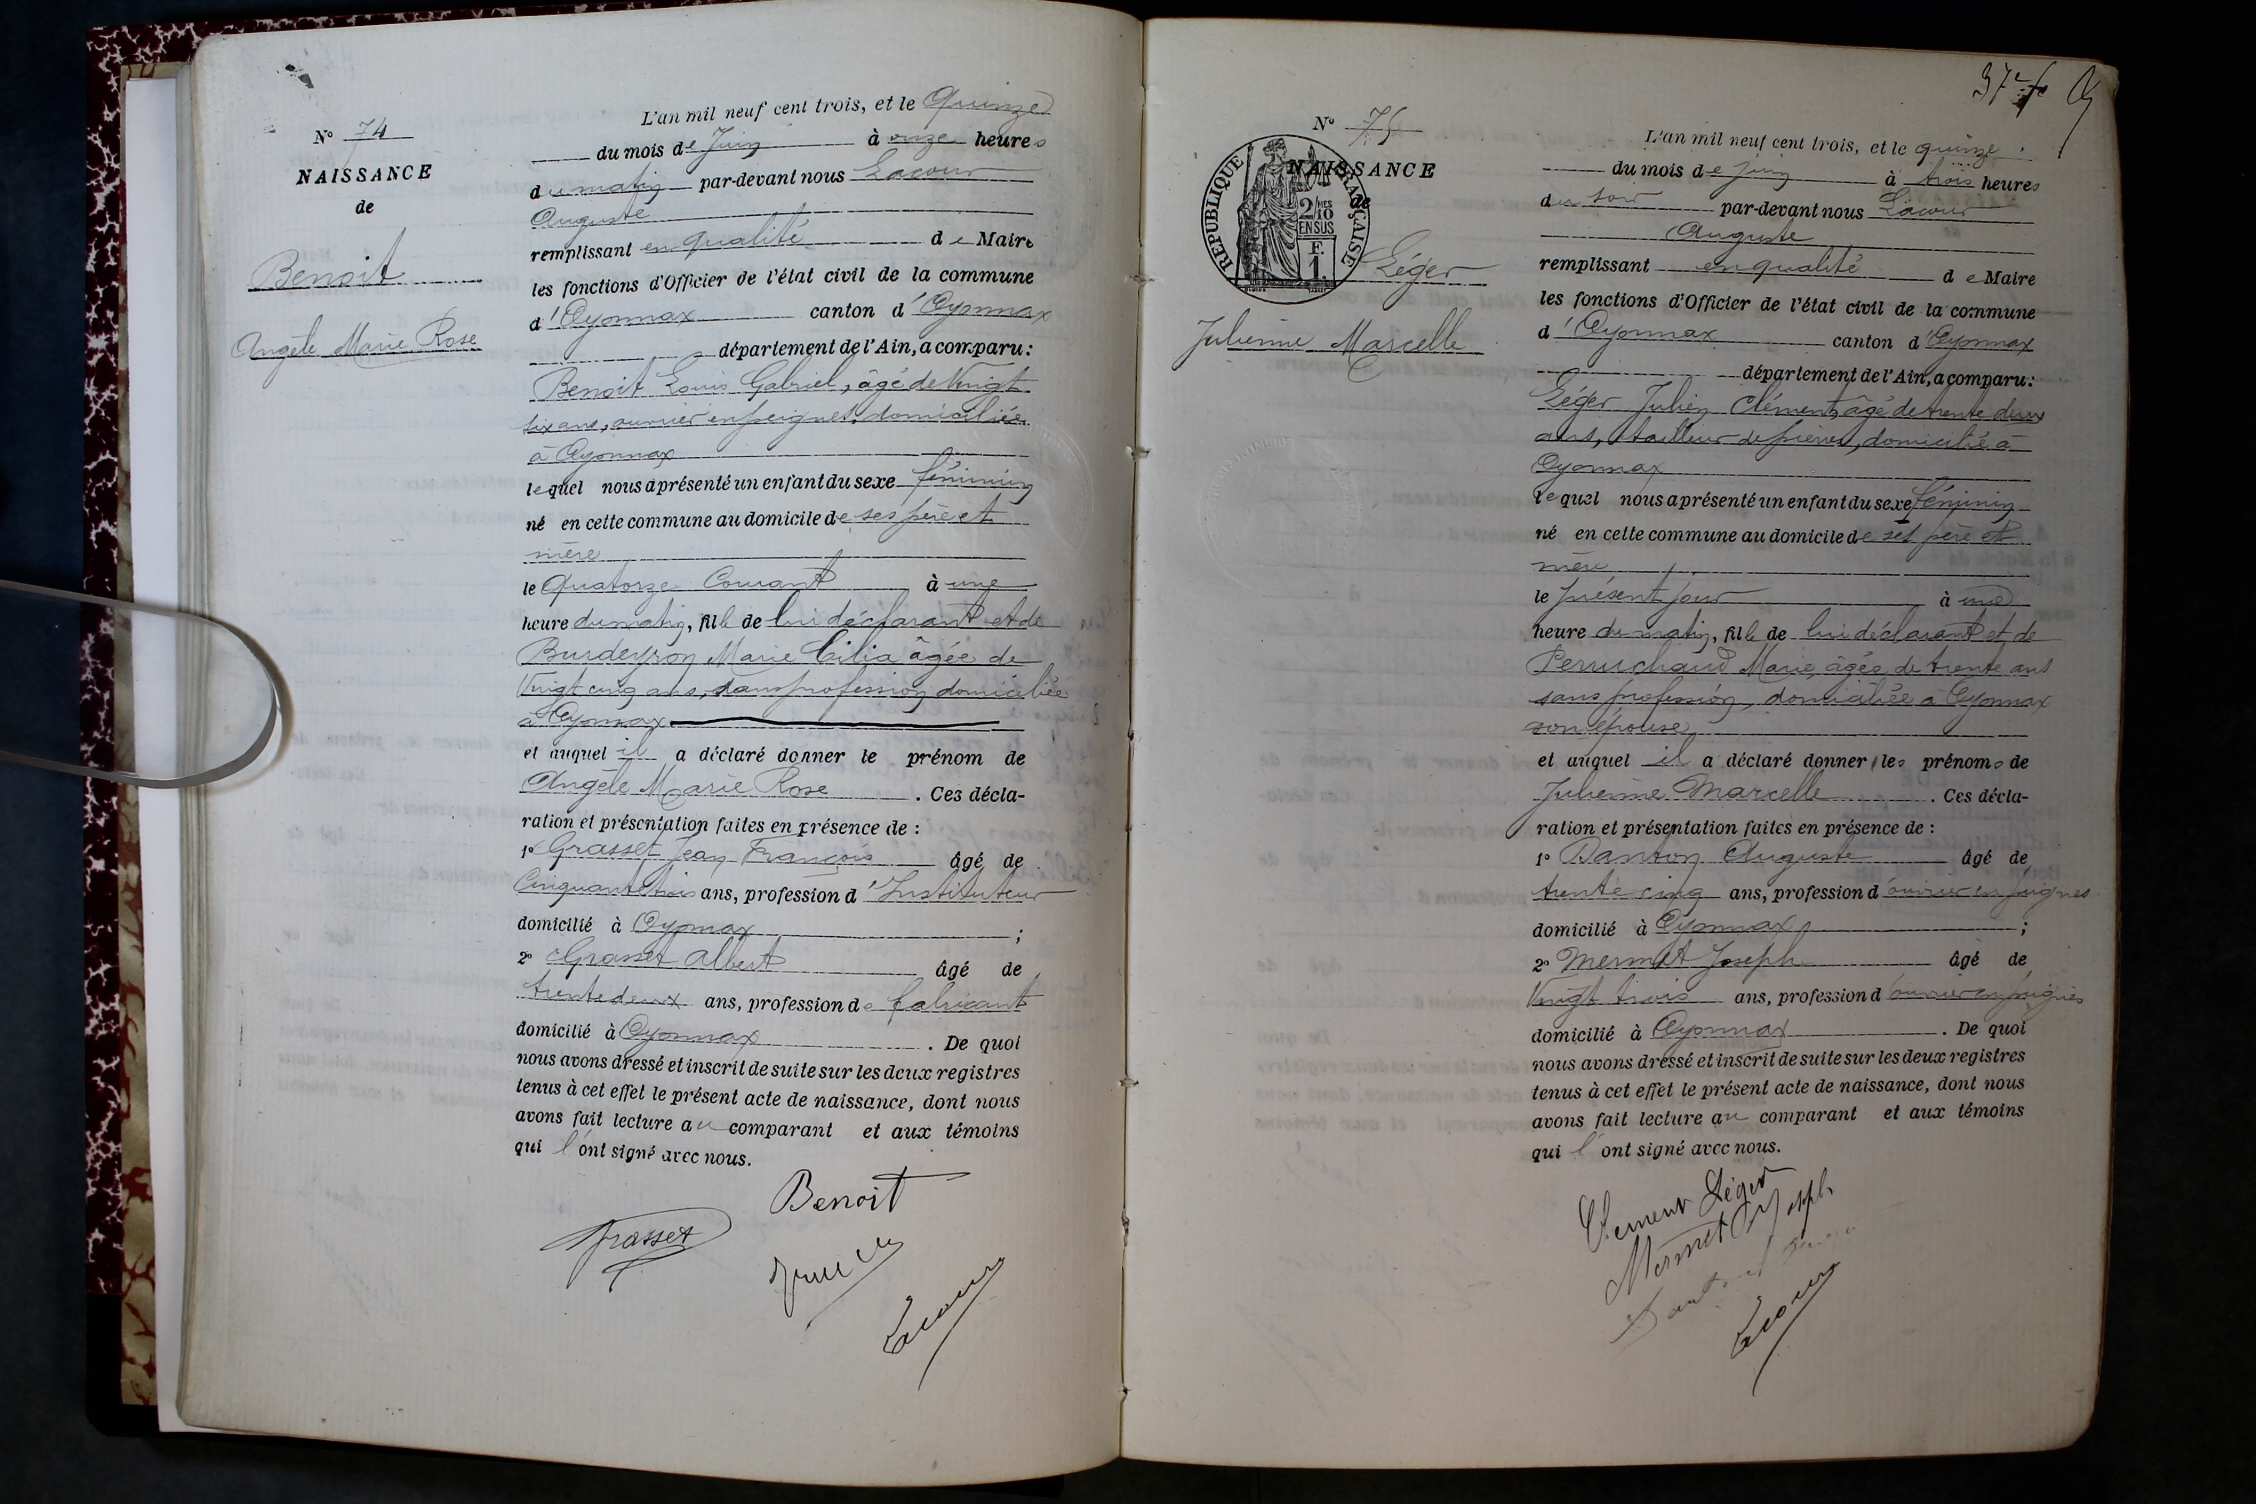 N° 74
NAISSANCE
de
Benoit
Angèle Marie Rose
L'an mil neuf cent trois, et le Quinze
du mois de Juin à onze heures
du matin par-devant nous Lacour
Auguste
remplissant en qualité de Maire
les fonctions d'Officier de l'état civil de la commune
d'Oyonnax canton d'Oyonnax
département de l'Ain, a comparu:
Benoit Louis Gabriel, âgé de Vingt
six ans, ouvrier en peignes, domiciliée
à Oyonnax
lequel nous a présenté un enfant du sexe féminin
né en cette commune au domicile de ses père et
mère
le Quatorze Courant à une
heure du matin, fille de lui déclarant et de
Burdeyron Marie Cilia âgée de
Vingt cinq ans, sans profession domiciliée
à Oyonnax
et auquel il a déclaré donner le prénom de
Angèle Marie Rose . Ces décla-
ration et présentation faites en présence de :
1° Grasset Jean François âgé de
Cinquante trois ans, profession d'Instituteur
domicilié à Oyonnax ;
2° Grasset Albert âgé de
trente deux ans, profession de fabricant
domicilié à Oyonnax . De quoi
nous avons dressé et inscrit de suite sur les deux registres
tenus à cet effet le présent acte de naissance, dont nous
avons fait lecture au comparant et aux témoins
qui l'ont signé avec nous.
Benoit
Grasset
Lacour
37e f
N° 75
NAISSANCE
de
REPUBLIQUE FRANÇAISE
2/10 MES
EN SUS
F.
1.
Léger
Julienne Marcelle
L'an mil neuf cent trois, et le quinze
du mois de juin à trois heures
du soir par-devant nous Lacour
Auguste
remplissant en qualité de Maire
les fonctions d'Officier de l'état civil de la commune
d'Oyonnax canton d'Oyonnax
département de l'Ain, a comparu:
Léger Julien Clément, âgé de trente deux
ans, tailleur de pierres, domicilié à
Oyonnax
lequel nous a présenté un enfant du sexe féminin
né en cette commune au domicile de ses père et
mère
le présent jour à une
heure du matin, fille de lui déclarant et de
Perruchaud Marie, âgée de trente ans
sans profession, domiciliée à Oyonnax
son épouse
et auquel il a déclaré donner les prénoms de
Julienne Marcelle . Ces décla-
ration et présentation faites en présence de :
1° Danton Auguste âgé de
trente cinq ans, profession d'ouvrier en peignes
domicilié à Oyonnax ;
2° Mermet Joseph âgé de
Vingt trois ans, profession d'ouvrier en peignes
domicilié à Oyonnax . De quoi
nous avons dressé et inscrit de suite sur les deux registres
tenus à cet effet le présent acte de naissance, dont nous
avons fait lecture au comparant et aux témoins
qui l'ont signé avec nous.
Clement Léger
Mermet Joseph
Lacour